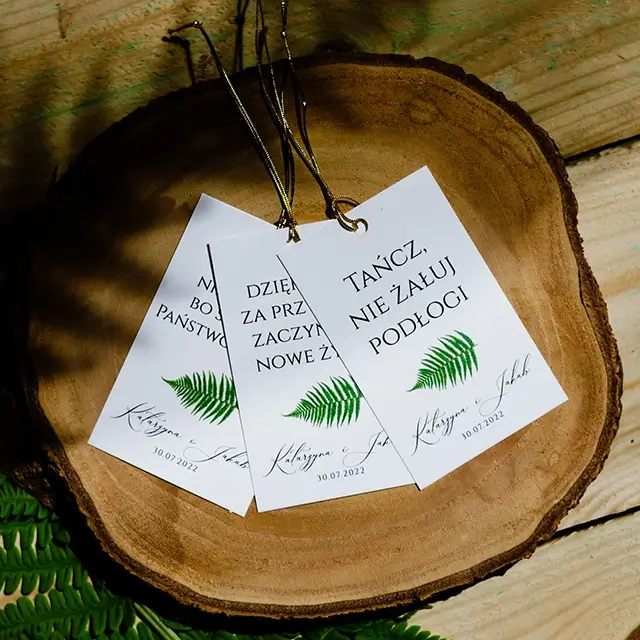 BO
PAŃSTWO
Katarzyna i Jakub
30.07.2022
ZA
ZACZYN
NOWE
Katarzyna i Jak
30.07.2022
TAŃCZ,
NIE ŻAŁUJ
PODŁOGI
Katarzyna i Jakub
30.07.2022